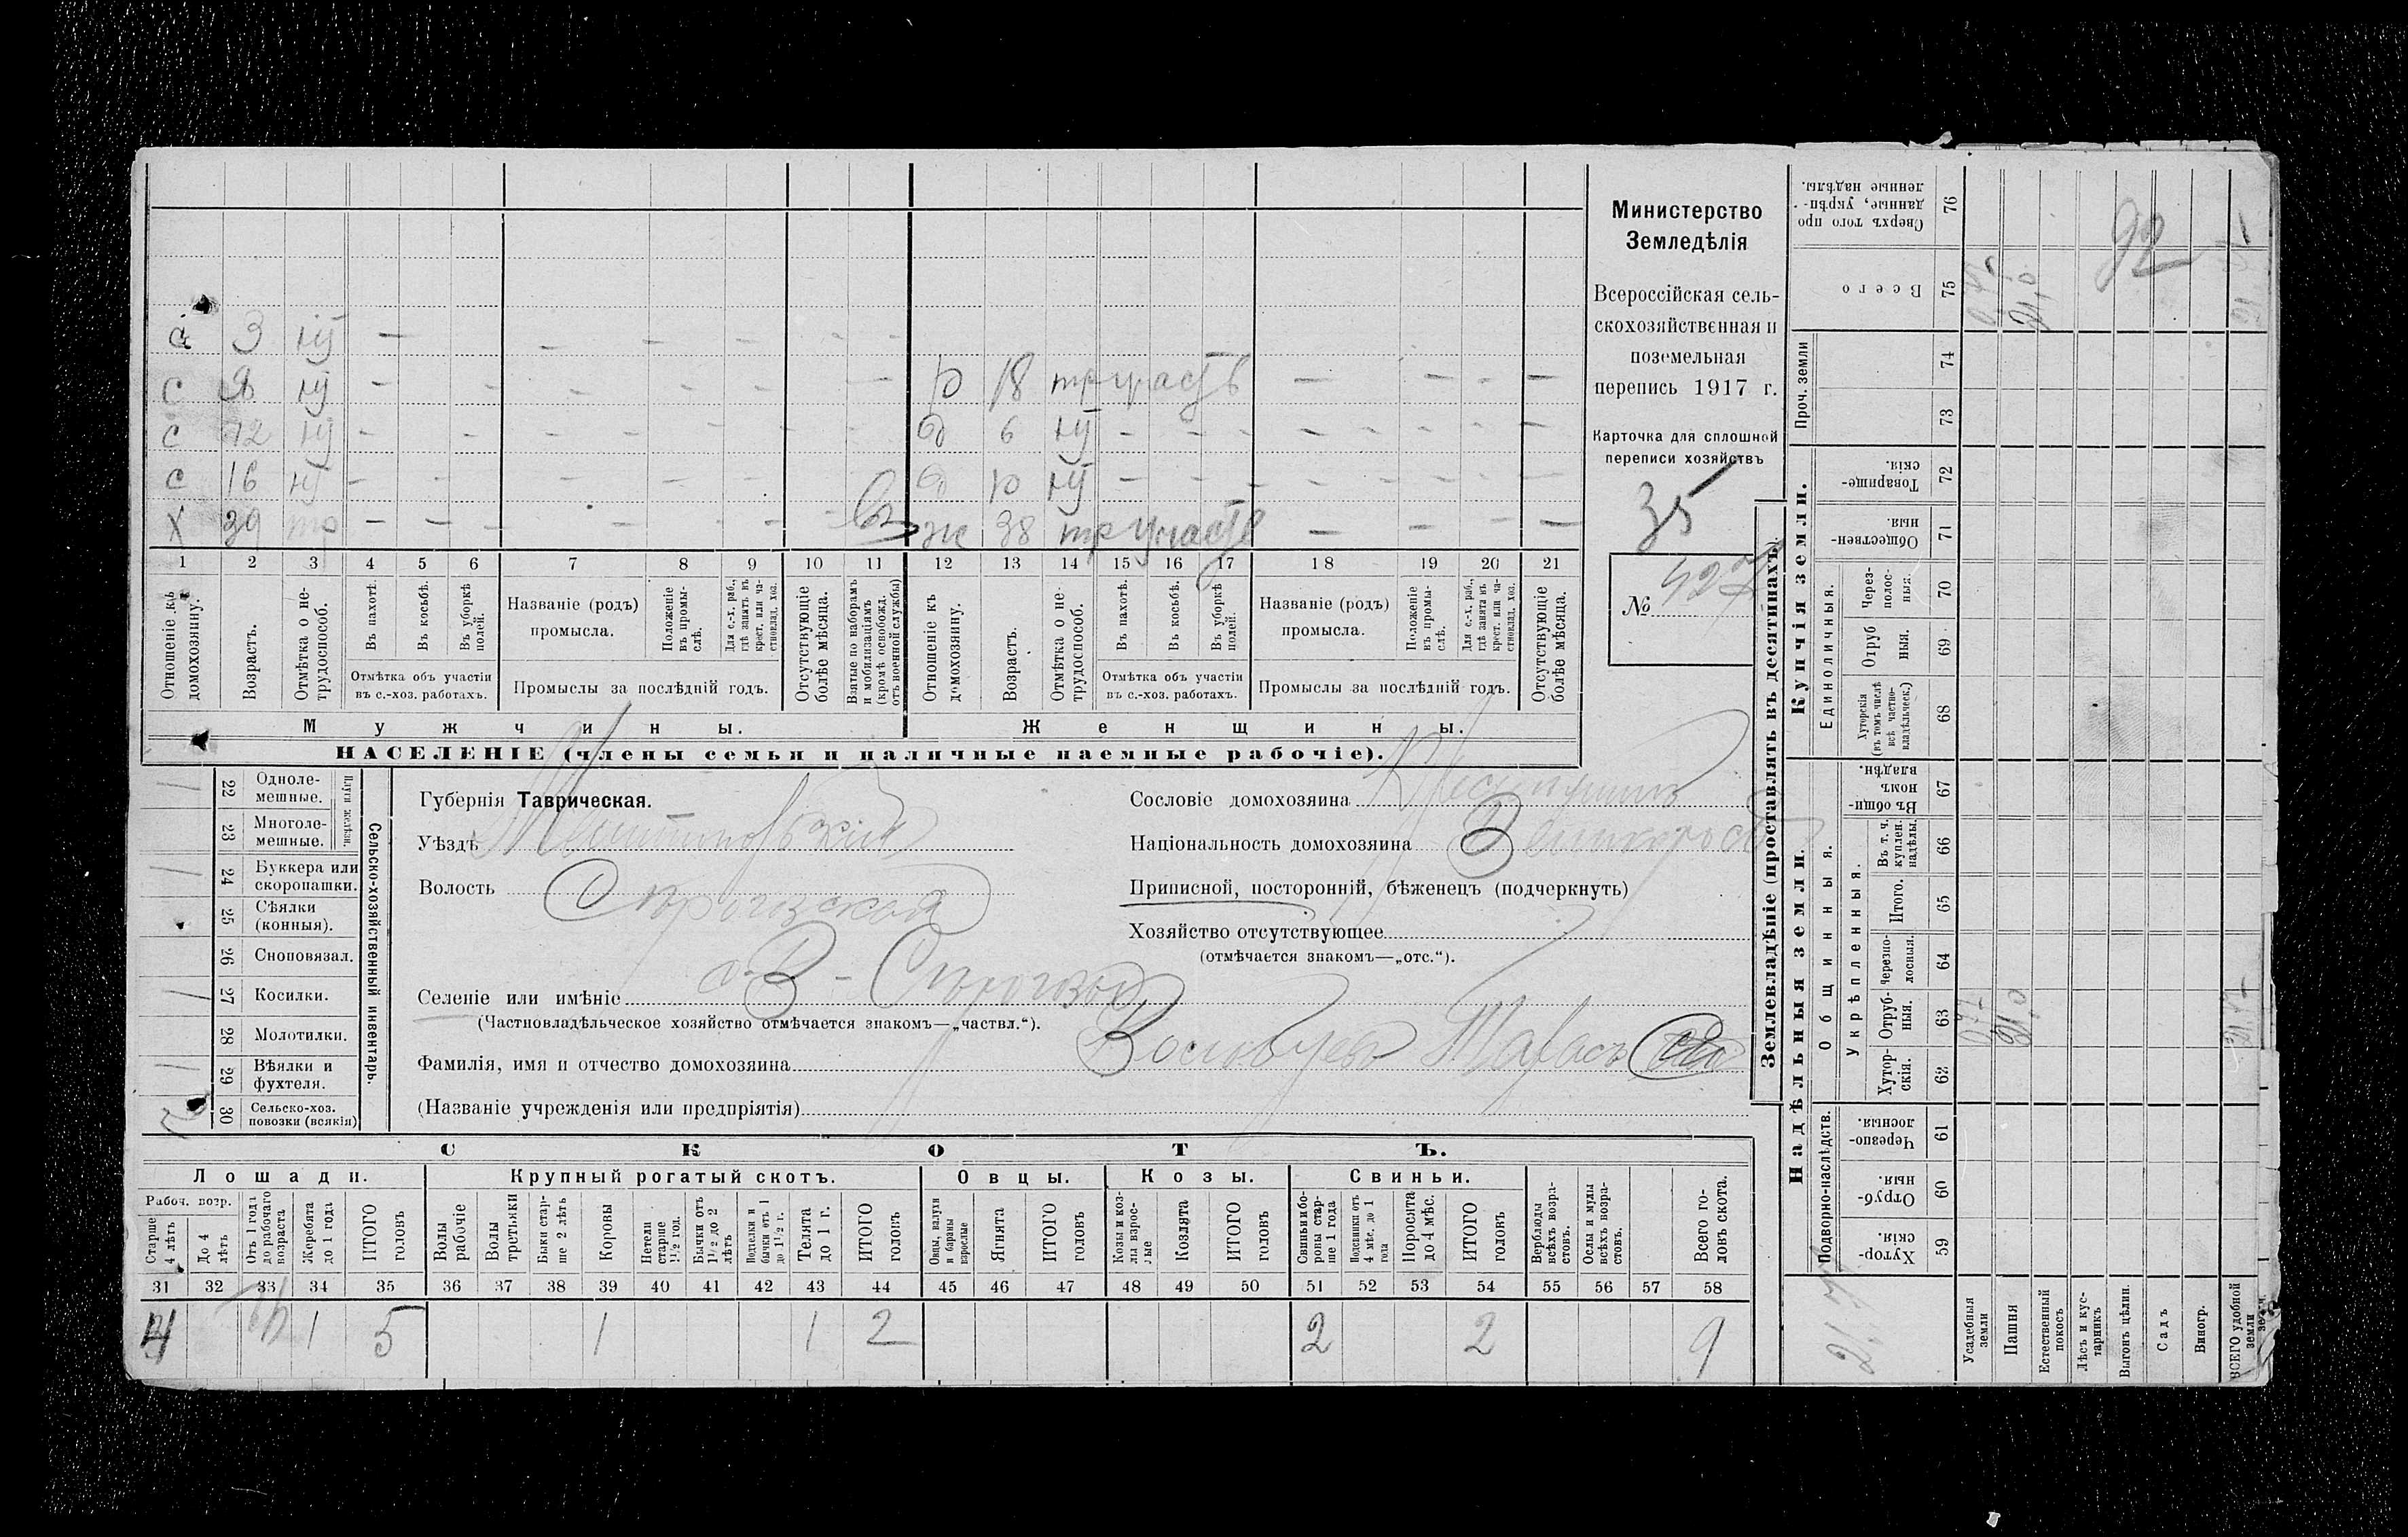 а 3 н/т — — — — — —
с 8 н/т — — — — — — — 10 18 тр участв — — — —
с 12 н/т — — — — — — — д 6 н/т — — — — — — —
с 16 н/т — — — — — — д 10 н/т — — — — — — —
х 39 тр — — — — — — — вз ж 38 тр участв — — — —
1 2 3 4 5 6 7 8 9 10 11 12 13 14 15 16 17 18 19 20 21
Отношеніе къ домохозяину.
Возрастъ.
Отмѣтка о нетрудоспособ.
Въ пахотѣ.
Въ косьбѣ.
Въ уборкѣ полей.
Отмѣтка объ участіи
въ с.-хоз. работахъ.
Названіе (родъ)
промысла.
Положеніе въ промыслѣ.
Для с.-х. раб., гдѣ занятъ въ крест. или частновлад. хоз.
Промыслы за послѣдній годъ.
Отсутствующіе болѣе мѣсяца.
Взятые по наборамъ и мобилизаціямъ (кромѣ освобожд. отъ военной службы)
Отношеніе къ домохозяину.
Возрастъ.
Отмѣтка о нетрудоспособ.
Въ пахотѣ.
Въ косьбѣ.
Въ уборкѣ полей.
Отмѣтка объ участіи
въ с.-хоз. работахъ.
Названіе (родъ)
промысла.
Положеніе въ промыслѣ.
Для с.-х. раб., гдѣ занята въ крест. или частновлад. хоз.
Промыслы за послѣдній годъ.
Отсутствующіе болѣе мѣсяца.
Мужчины. Женщины.
НАСЕЛЕНІЕ (члены семьи и наличные наемные рабочіе).
Министерство
Земледѣлія
Всероссійская сель-
скохозяйственная и
поземельная
перепись 1917 г.
Карточка для сплошной
переписи хозяйствъ
35
№ 427
22 Одноле-
мешные.
23 Многоле-
мешные.
Плуги желѣзн.
24 Буккера или
скоропашки.
25 Сѣялки
(конныя).
26 Сноповязал.
27 Косилки.
28 Молотилки.
29 Вѣялки и
фухтеля.
30 Сельско-хоз.
повозки (всякія)
Сельско-хозяйственный инвентарь.
Губернія Таврическая.
Уѣздъ Мелитопольскій
Волость Сѣрогозская
Селеніе или имѣніе с. В-Сѣрогозы
(Частновладѣльческое хозяйство отмѣчается знакомъ—„частвл.“).
Фамилія, имя и отчество домохозяина Тарасъ
(Названіе учрежденія или предпріятія)
Сословіе домохозяина Крестьянинъ
Національность домохозяина Великороссъ
Приписной, посторонній, бѣженецъ (подчеркнуть)
Хозяйство отсутствующее
(отмѣчается знакомъ—„отс.“).
СКОТЪ.
Лошади. Крупный рогатый скотъ. Овцы. Козы. Свиньи.
Рабоч. возр.
Старше 4 лѣтъ
До 4 лѣтъ
Отъ 1 года до рабочаго возраста
Жеребята до 1 года
ИТОГО головъ
Волы рабочіе
Волы третьяки
Быки старше 2 лѣтъ
Коровы
Нетели старше 1½ год.
Бычки отъ 1½ до 2 лѣтъ
Подтелки и бычки отъ 1 до 1½ г.
Телята до 1 г.
ИТОГО головъ
Овцы, валухи и бараны взрослые
Ягнята
ИТОГО головъ
Козы и козлы взрослые
Козлята
ИТОГО головъ
Свиньи и боровы старше 1 года
Подсвинки отъ 4 мѣс. до 1 года
Поросята до 4 мѣс.
ИТОГО головъ
Верблюды всѣхъ возрастовъ.
Ослы и мулы всѣхъ возрастовъ.
Всего головъ скота.
31 32 33 34 35 36 37 38 39 40 41 42 43 44 45 46 47 48 49 50 51 52 53 54 55 56 57 58
4 1 5 1 1 2 2 2 9
Землевладѣніе (проставлять въ десятинахъ).
Надѣльныя земли. Купчія земли.
Сверхъ того проданные, укрѣпленные надѣлы. 76
Всего 75
Проч. земли 74 73
Товарищескія. 72
Общественныя. 71
Единоличныя.
Черезполосныя. 70
Отрубныя. 69
Хуторскія (въ томъ числѣ всѣ частновладѣльческ.) 68
Въ общинномъ владѣн. 67
Общинныя.
Укрѣпленныя.
Въ т. ч. куплен. надѣлы. 66
Итого. 65
Черезполосныя. 64
Отрубныя. 63
Хуторскія. 62
Подворно-наслѣдств.
Черезполосныя. 61
Отрубныя. 60
Хуторскія. 59
Усадебныя земли
Пашня
Естественный покосъ
Лѣсъ и кустарникъ
Выгонъ цѣлин.
Садъ
Виногр.
ВСЕГО удобной земли
21,0
21,0
92
21,7